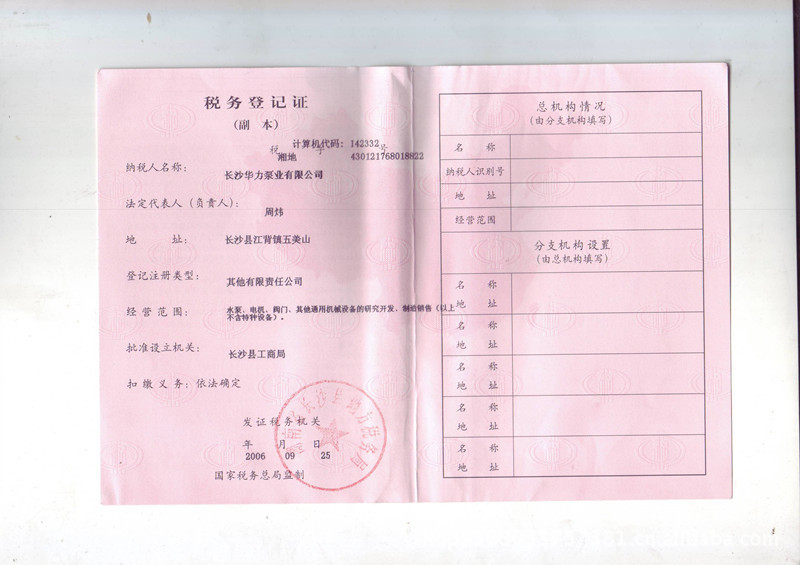 税务登记证
(副 本)
计算机代码: 142332
税 字 号
湘地 430121768018822
纳税人名称: 长沙华力泵业有限公司
法定代表人(负责人): 周炜
地 址: 长沙县江背镇五美山
登记注册类型: 其他有限责任公司
经 营 范 围: 水泵、电机、阀门、其他通用机械设备的研究开发、制造销售(以上
不含特种设备)。
批准设立机关: 长沙县工商局
扣 缴 义 务: 依法确定
发证税务机关
年 月 日
2006 09 25
国家税务总局监制
总机构情况
(由分支机构填写)
名 称
纳税人识别号
地 址
经营范围
分支机构设置
(由总机构填写)
名 称
地 址
名 称
地 址
名 称
地 址
名 称
地 址
名 称
地 址